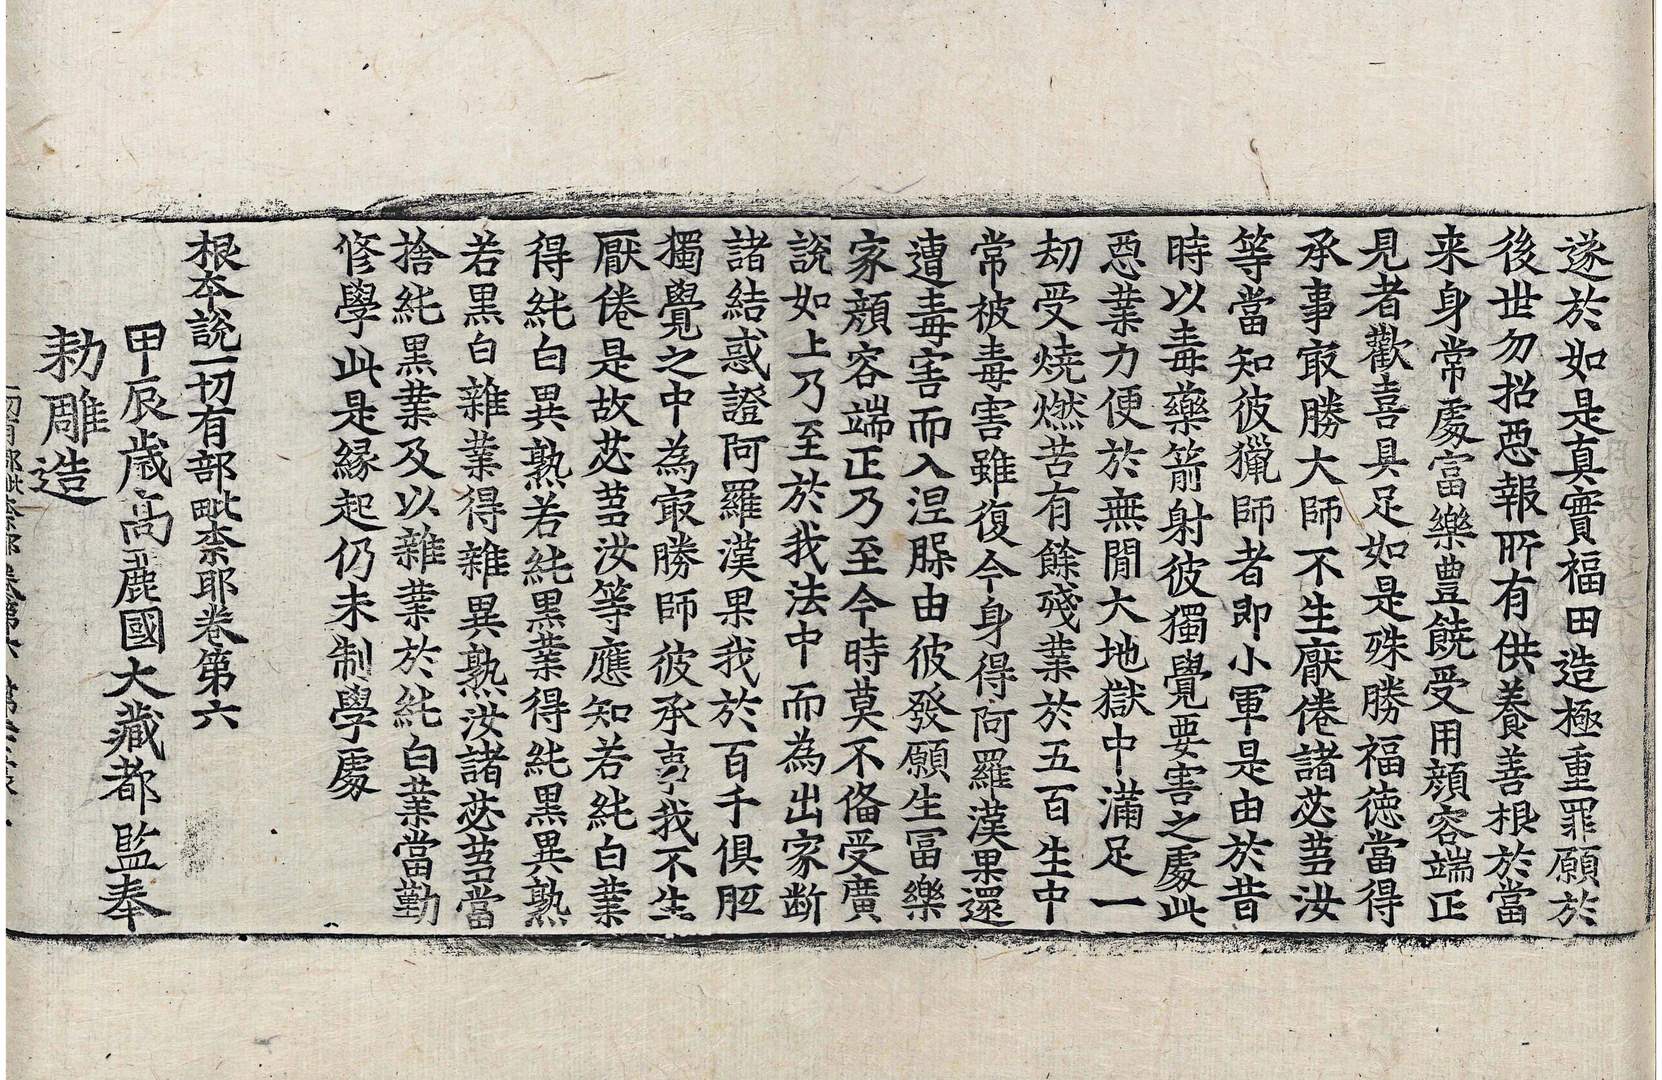 遂於如是真實福田造極重罪願於
後世勿招惡報所有供養善根於當
来身常處富樂豊饒受用顔容端正
見者歡喜具足如是殊勝福徳當得
承事㝡勝大師不生厭倦諸苾芻汝
等當知彼獵師者即小軍是由於昔
時以毒藥箭射彼獨覺要害之處此
惡業力便於無間大地獄中滿足一
劫受燒燃苦有餘殘業於五百生中
常被毒害雖復今身得阿羅漢果還
遭毒害而入涅槃由彼發願生富樂
家顔容端正乃至今時莫不俻受廣
說如上乃至於我法中而為出家断
諸結惑證阿羅漢果我於百千俱胝
獨覺之中為㝡勝師彼承事我不生
厭倦是故苾芻汝等應知若純白業
得純白異熟若純黒業得純黒異熟
若黒白雜業得雜異熟汝諸苾芻當
捨純黒業及以雜業於純白業當勤
修學此是緣起仍未制學處
根本說一切有部毗柰耶卷第六
甲辰歳高麗國大藏都監奉
勑雕造